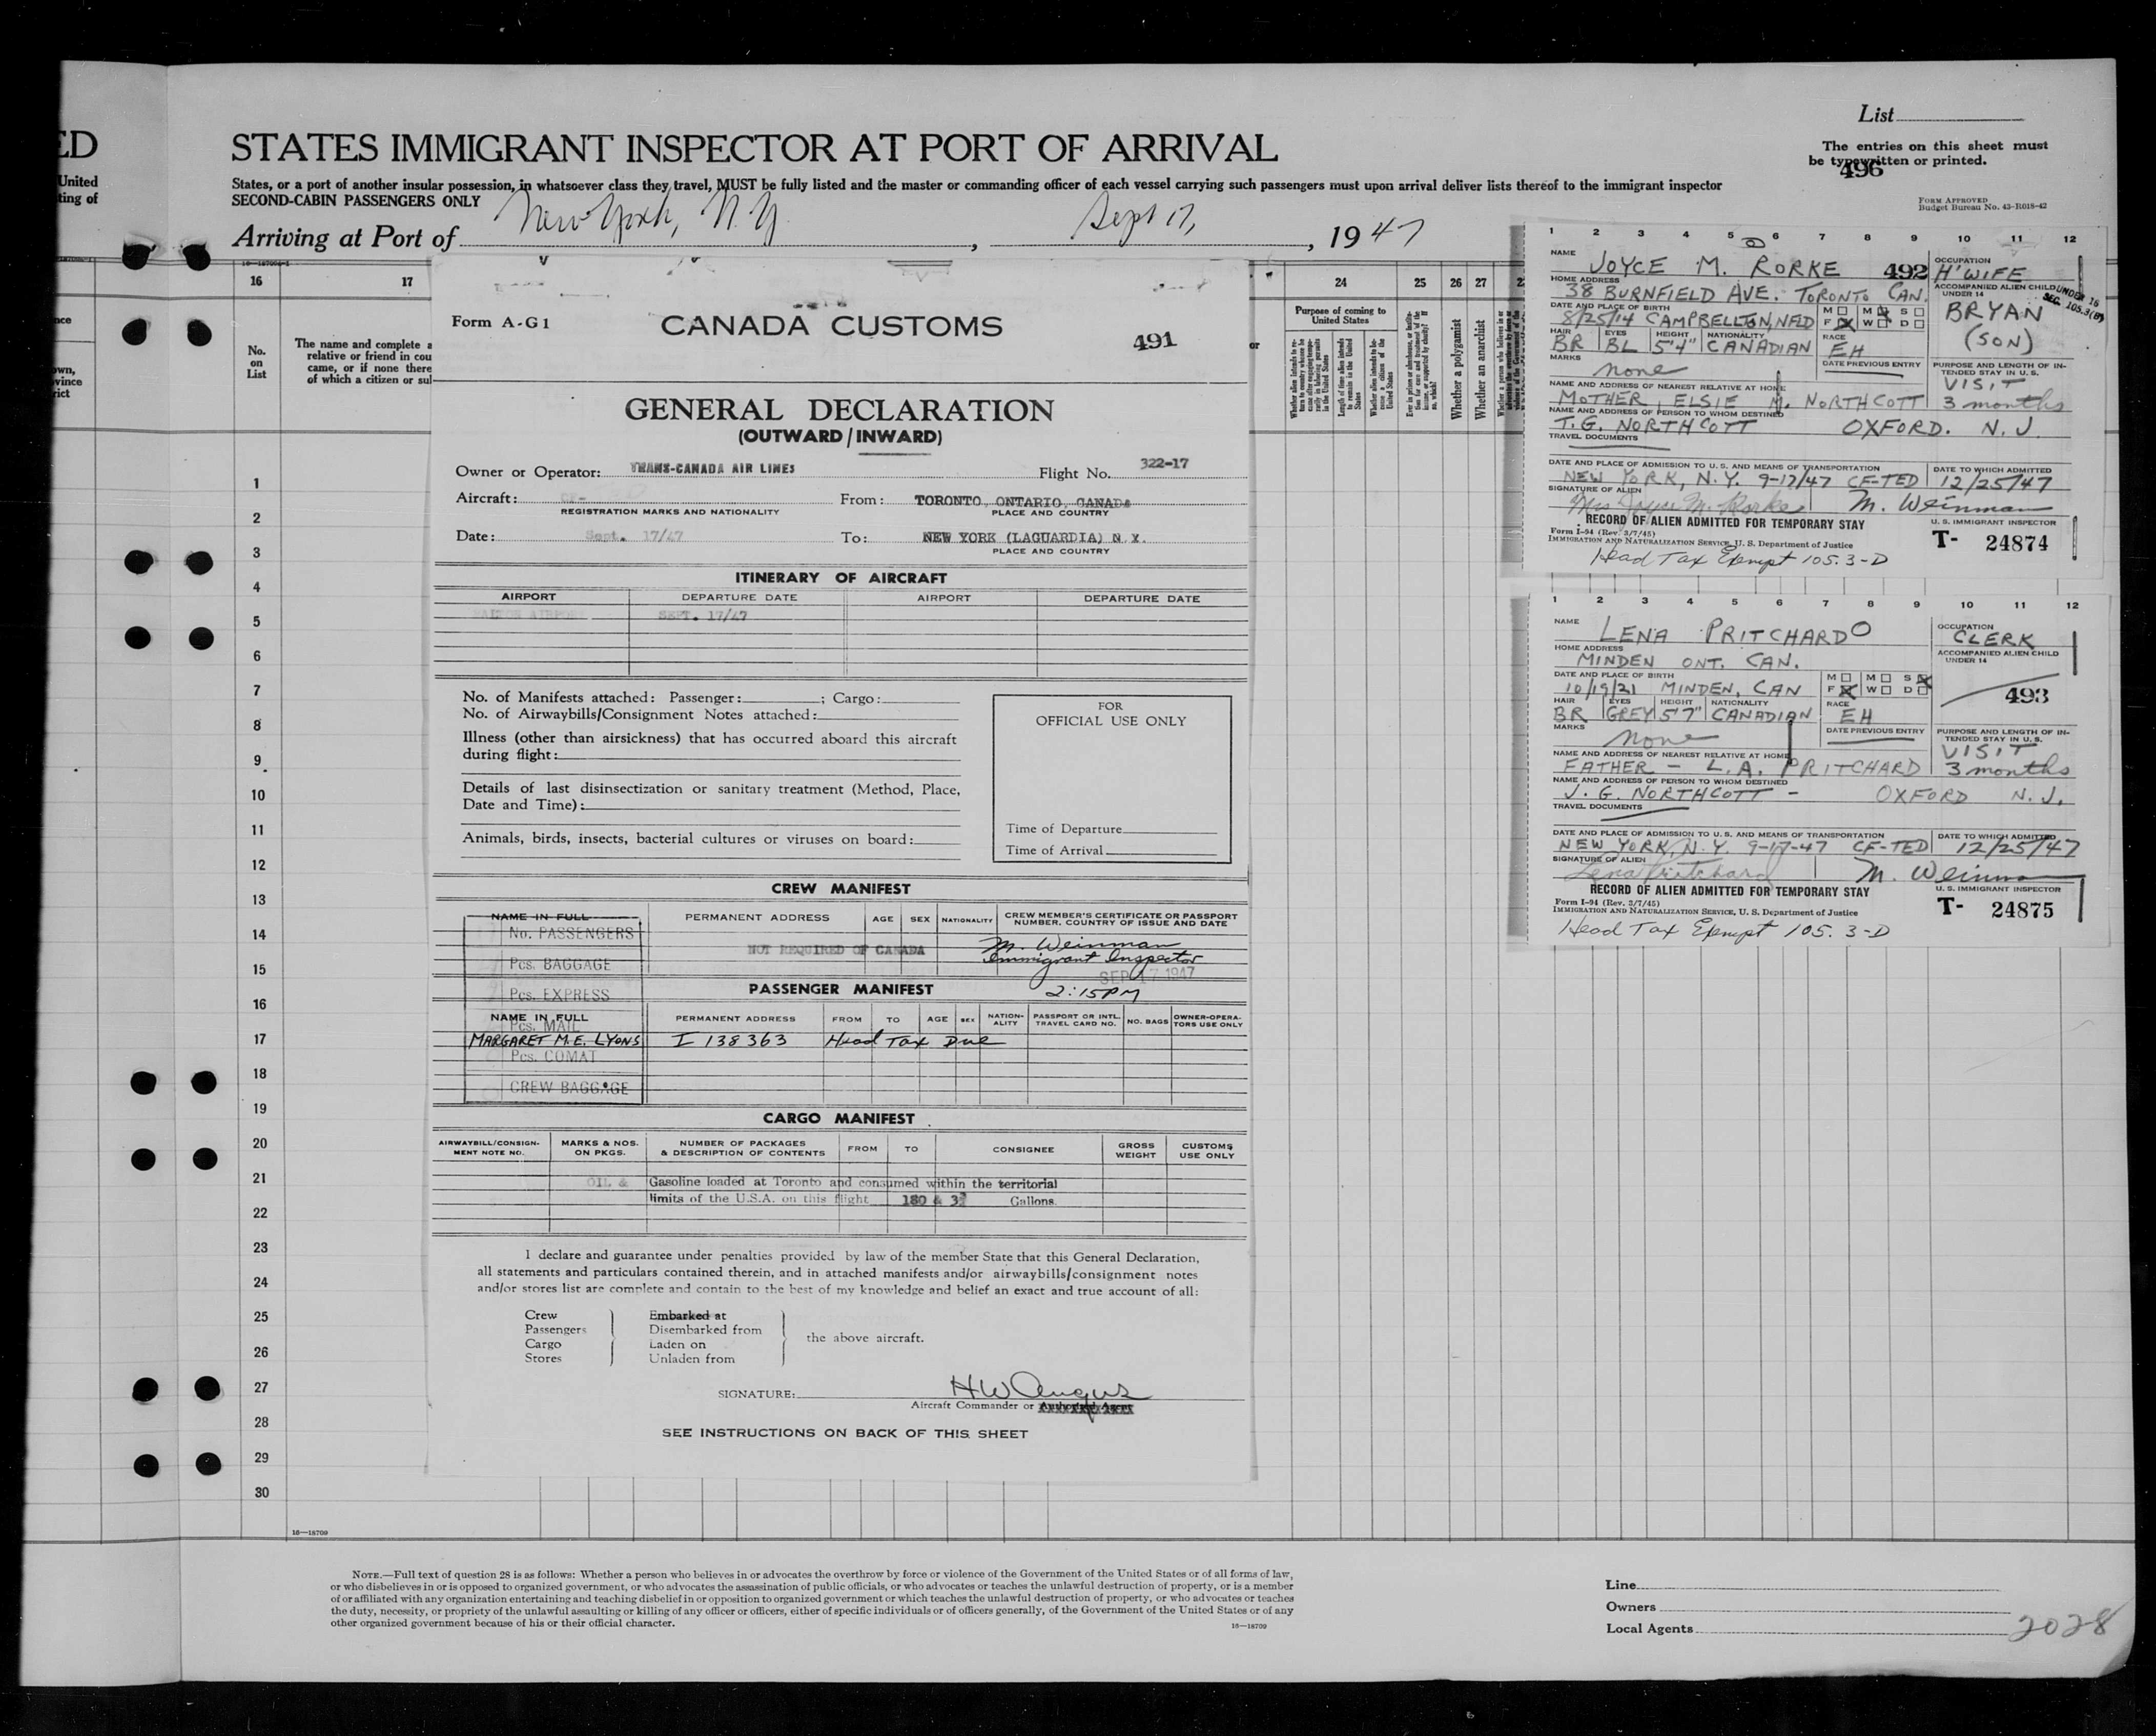 ED
United
ting of
nce
own,
vince
rict
List
The entries on this sheet must
be typewritten or printed.
496
FORM APPROVED
Budget Bureau No. 43-R018-42
STATES IMMIGRANT INSPECTOR AT PORT OF ARRIVAL
States, or a port of another insular possession, in whatsoever class they travel, MUST be fully listed and the master or commanding officer of each vessel carrying such passengers must upon arrival deliver lists thereof to the immigrant inspector
SECOND-CABIN PASSENGERS ONLY
Arriving at Port of New York, N.Y. , Sept 17, , 1947
16 17 24 25 26 27
No.
on
List
The name and complete a
relative or friend in cou
came, or if none there
of which a citizen or sul
or
Purpose of coming to
United States
Whether a polygamist
Whether an anarchist
1
2
3
4
5
6
7
8
9
10
11
12
13
14
15
16
17
18
19
20
21
22
23
24
25
26
27
28
29
30
16—18709
Form A-G1
CANADA CUSTOMS
491
GENERAL DECLARATION
(OUTWARD/INWARD)
Owner or Operator: TRANS-CANADA AIR LINES Flight No. 322-17
Aircraft: CF- From: TORONTO, ONTARIO, CANADA
REGISTRATION MARKS AND NATIONALITY PLACE AND COUNTRY
Date: Sept. 17/47 To: NEW YORK (LAGUARDIA) N.Y.
PLACE AND COUNTRY
ITINERARY OF AIRCRAFT
AIRPORT DEPARTURE DATE AIRPORT DEPARTURE DATE
MALTON AIRPORT SEPT. 17/47
No. of Manifests attached: Passenger: ; Cargo:
No. of Airwaybills/Consignment Notes attached:
Illness (other than airsickness) that has occurred aboard this aircraft
during flight:
Details of last disinsectization or sanitary treatment (Method, Place,
Date and Time):
Animals, birds, insects, bacterial cultures or viruses on board:
FOR
OFFICIAL USE ONLY
Time of Departure
Time of Arrival
CREW MANIFEST
NAME IN FULL PERMANENT ADDRESS AGE SEX NATIONALITY CREW MEMBER'S CERTIFICATE OR PASSPORT
NUMBER, COUNTRY OF ISSUE AND DATE
No. PASSENGERS
NOT REQUIRED OF CANADA M. Weinman
Immigrant Inspector
Pcs. BAGGAGE
SEP 17 1947
Pcs. EXPRESS
PASSENGER MANIFEST 2:15PM
NAME IN FULL PERMANENT ADDRESS FROM TO AGE SEX NATION-
ALITY PASSPORT OR INTL.
TRAVEL CARD NO. NO. BAGS OWNER-OPERA-
TORS USE ONLY
Pcs. MAIL
MARGARET M.E. LYONS I 138363 Head Tax Due
Pcs. COMAT
CREW BAGGAGE
CARGO MANIFEST
AIRWAYBILL/CONSIGN-
MENT NOTE NO. MARKS & NOS.
ON PKGS. NUMBER OF PACKAGES
& DESCRIPTION OF CONTENTS FROM TO CONSIGNEE GROSS
WEIGHT CUSTOMS
USE ONLY
OIL & Gasoline loaded at Toronto and consumed within the territorial
limits of the U.S.A. on this flight 180 & Gallons.
I declare and guarantee under penalties provided by law of the member State that this General Declaration,
all statements and particulars contained therein, and in attached manifests and/or airwaybills/consignment notes
and/or stores list are complete and contain to the best of my knowledge and belief an exact and true account of all:
Crew Embarked at
Passengers Disembarked from
Cargo Laden on
Stores Unladen from
the above aircraft.
SIGNATURE: HW Angus
Aircraft Commander or Authorized Agent
SEE INSTRUCTIONS ON BACK OF THIS SHEET
1 2 3 4 5 6 7 8 9 10 11 12
NAME JOYCE M. RORKE 492
OCCUPATION H'WIFE
HOME ADDRESS
38 BURNFIELD AVE. TORONTO CAN.
ACCOMPANIED ALIEN CHILD
UNDER 14
UNDER 16
SEC. 105.3(B)
BRYAN
(SON)
DATE AND PLACE OF BIRTH
8/25/14 CAMPBELLTON, NFLD
M M S
F W D
HAIR EYES HEIGHT NATIONALITY RACE
BR BL 5'4" CANADIAN EH
MARKS none
DATE PREVIOUS ENTRY
PURPOSE AND LENGTH OF IN-
TENDED STAY IN U. S.
VISIT
3 months
NAME AND ADDRESS OF NEAREST RELATIVE AT HOME
MOTHER, ELSIE M. NORTHCOTT
NAME AND ADDRESS OF PERSON TO WHOM DESTINED
T.G. NORTHCOTT OXFORD. N.J.
TRAVEL DOCUMENTS
DATE AND PLACE OF ADMISSION TO U. S. AND MEANS OF TRANSPORTATION DATE TO WHICH ADMITTED
NEW YORK, N.Y. 9-17/47 CF-TED 12/25/47
SIGNATURE OF ALIEN
Mrs Joyce M. Rorke M. Weinman
RECORD OF ALIEN ADMITTED FOR TEMPORARY STAY U. S. IMMIGRANT INSPECTOR
Form I-94 (Rev. 3/7/45)
IMMIGRATION AND NATURALIZATION SERVICE, U. S. Department of Justice
T- 24874
Head Tax Exempt 105.3-D
1 2 3 4 5 6 7 8 9 10 11 12
NAME LENA PRITCHARD
OCCUPATION CLERK
HOME ADDRESS
MINDEN ONT. CAN.
ACCOMPANIED ALIEN CHILD
UNDER 14
493
DATE AND PLACE OF BIRTH
10/19/21 MINDEN, CAN
M M S
F W D
HAIR EYES HEIGHT NATIONALITY RACE
BR GREY 5'7" CANADIAN EH
MARKS none
DATE PREVIOUS ENTRY
PURPOSE AND LENGTH OF IN-
TENDED STAY IN U. S.
VISIT
3 months
NAME AND ADDRESS OF NEAREST RELATIVE AT HOME
FATHER - L.A. PRITCHARD
NAME AND ADDRESS OF PERSON TO WHOM DESTINED
J. G. NORTHCOTT - OXFORD N.J.
TRAVEL DOCUMENTS
DATE AND PLACE OF ADMISSION TO U. S. AND MEANS OF TRANSPORTATION DATE TO WHICH ADMITTED
NEW YORK, N.Y. 9-17-47 CF-TED 12/25/47
SIGNATURE OF ALIEN
Lena Pritchard M. Weinman
RECORD OF ALIEN ADMITTED FOR TEMPORARY STAY U. S. IMMIGRANT INSPECTOR
Form I-94 (Rev. 3/7/45)
IMMIGRATION AND NATURALIZATION SERVICE, U. S. Department of Justice
T- 24875
Head Tax Exempt 105.3-D
NOTE.—Full text of question 28 is as follows: Whether a person who believes in or advocates the overthrow by force or violence of the Government of the United States or of all forms of law,
or who disbelieves in or is opposed to organized government, or who advocates the assassination of public officials, or who advocates or teaches the unlawful destruction of property, or is a member
of or affiliated with any organization entertaining and teaching disbelief in or opposition to organized government or which teaches the unlawful destruction of property, or who advocates or teaches
the duty, necessity, or propriety of the unlawful assaulting or killing of any officer or officers, either of specific individuals or of officers generally, of the Government of the United States or of any
other organized government because of his or their official character.
16—18709
Line
Owners
Local Agents
2028